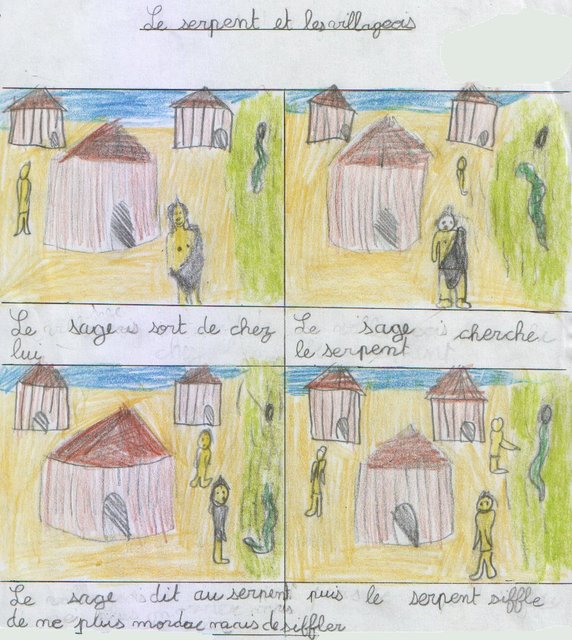 Le serpent et les villageois
Le sage sort de chez
lui
Le sage cherche
le serpent
Le sage dit au serpent
de ne plus mordre mais de siffler
puis le serpent siffle